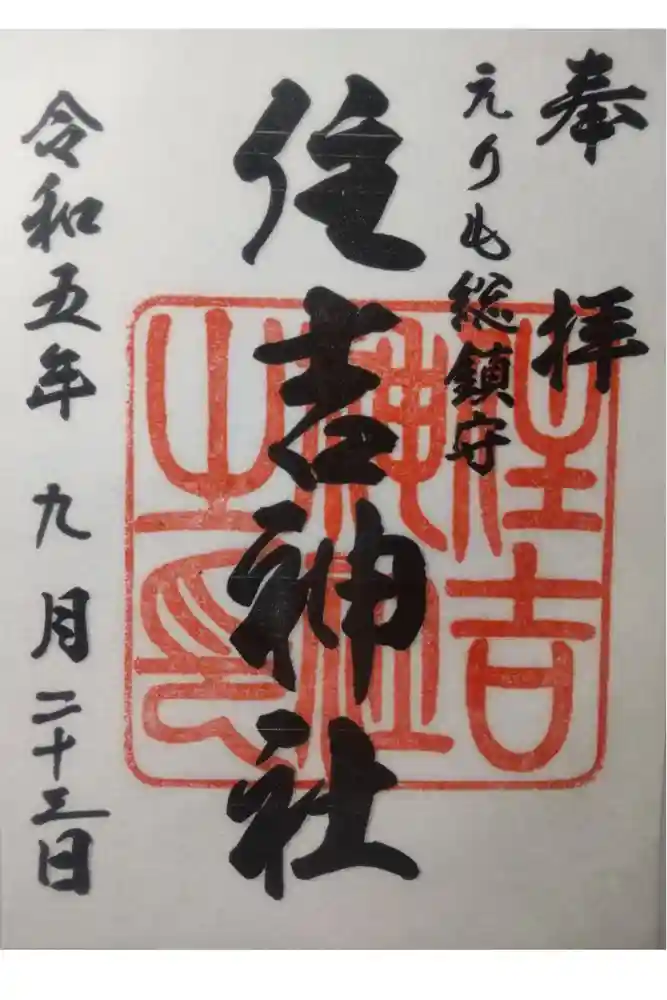 奉拝
えりも総鎮守
住吉神社
住吉神社之印
令和五年九月二十三日